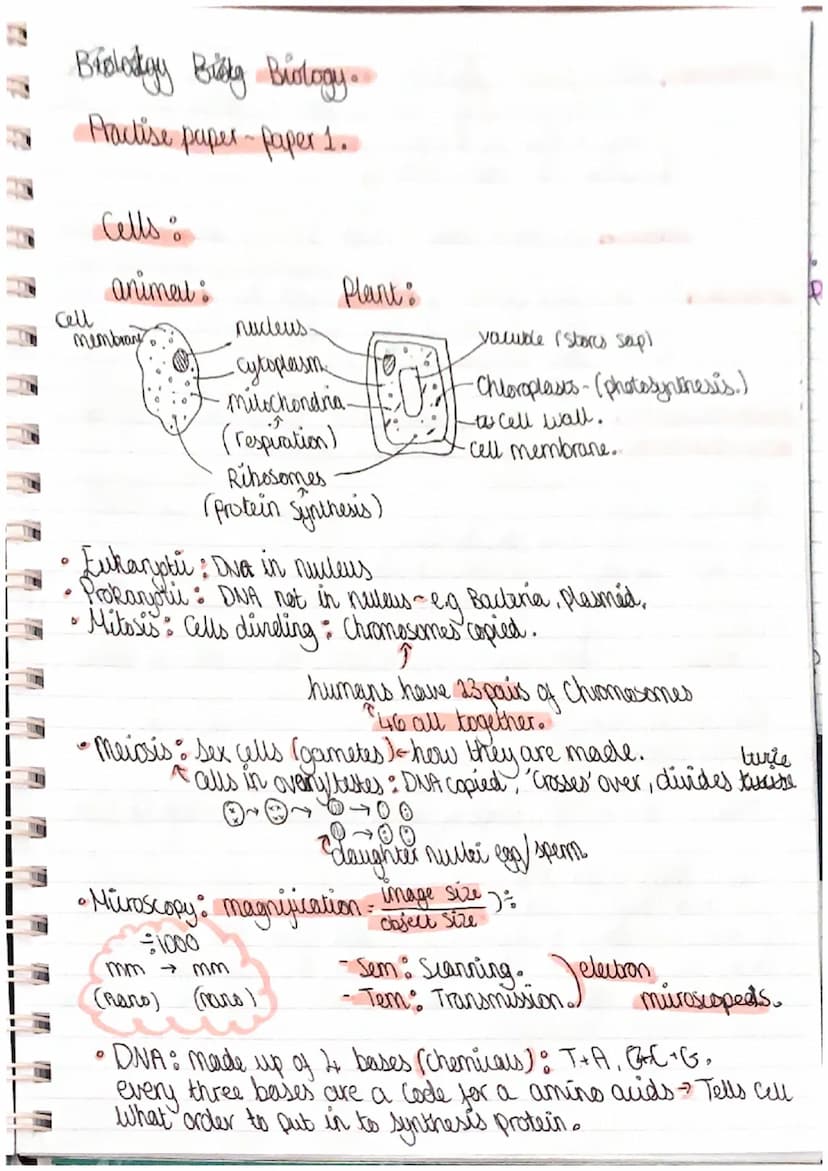 Biology.
Practise paper - paper 1.
Cells:
animal: Plant:
Cell membrane
nucleus
cytoplasm
mitochondria
(respiration)
Ribosomes
(protein synthesis)
vacuole (stores sap)
Chloroplasts - (photosynthesis.)
cell wall.
cell membrane.
• Eukaryotic: DNA in nucleus
• Prokaryotic: DNA not in nucleus - e.g Bacteria, plasmid.
• Mitosis: Cells dividing: Chromosomes copied.
↑
humans have 23 pairs of Chromosomes
↑ 46 all together.
• Meiosis: Sex cells (gametes) ← how they are made.
↖ cells in ovary/testes: DNA copied, 'crosses' over, divides
daughter nuclei egg/sperm
• Microscopy: magnification = image size / object size ) ÷
÷1000
mm → mm
(nano) (nano)
- Sem: Scanning.
- Tem: Transmission.
electron
• DNA: made up of 4 bases (chemicals): T+A, C+G.
every three bases are a code for a amino acids → Tells cell
what order to put in to synthesis protein.